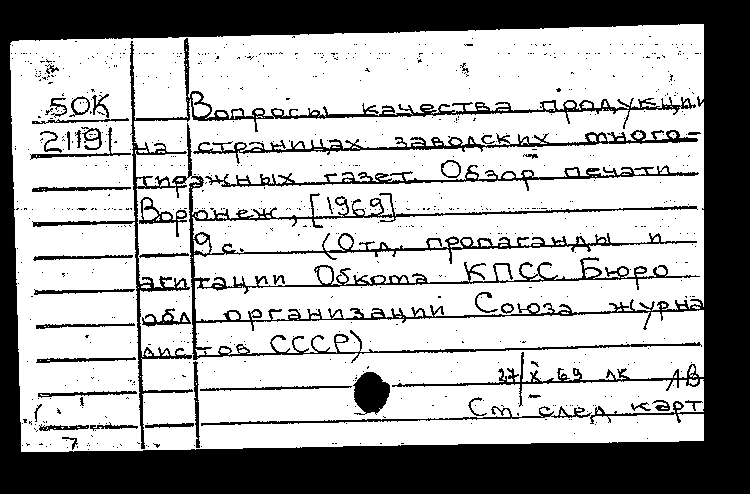 50К Вопросы качества продукции
21191 на страницах заводских много-
тиражных газет. Обзор печати.
Воронеж, [1969]
9 с. (Отд. пропаганды и
агитации Обкома КПСС. Бюро
обл. организации Союза журна
листов СССР).
27/X-69 лк ЛВ
См. след. карт.